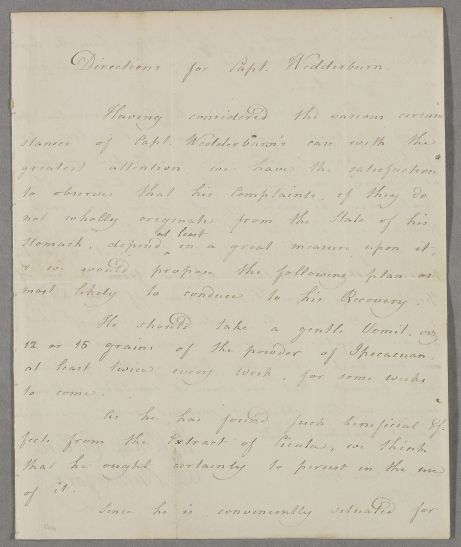 Directions for Capt. Wedderburn.
Having considered the various circum
stances of Capt. Wedderburn's case with the
greatest attention, we have the satisfaction
to observe that his Complaints, if they do
not wholly originate from the State of his
Stomach, depend at least in a great measure upon it,
& we would propose the following plan as
most likely to conduce to his Recovery.
He should take a gentle Vomit,
12 or 15 grains of the powder of Ipecacuan.
at least twice every week, for some weeks
to come.
As he has found such beneficial Ef-
fects from the Extract of Cicuta, we think
that he ought certainly to persist in the use
of it.
Since he is conveniently situated for